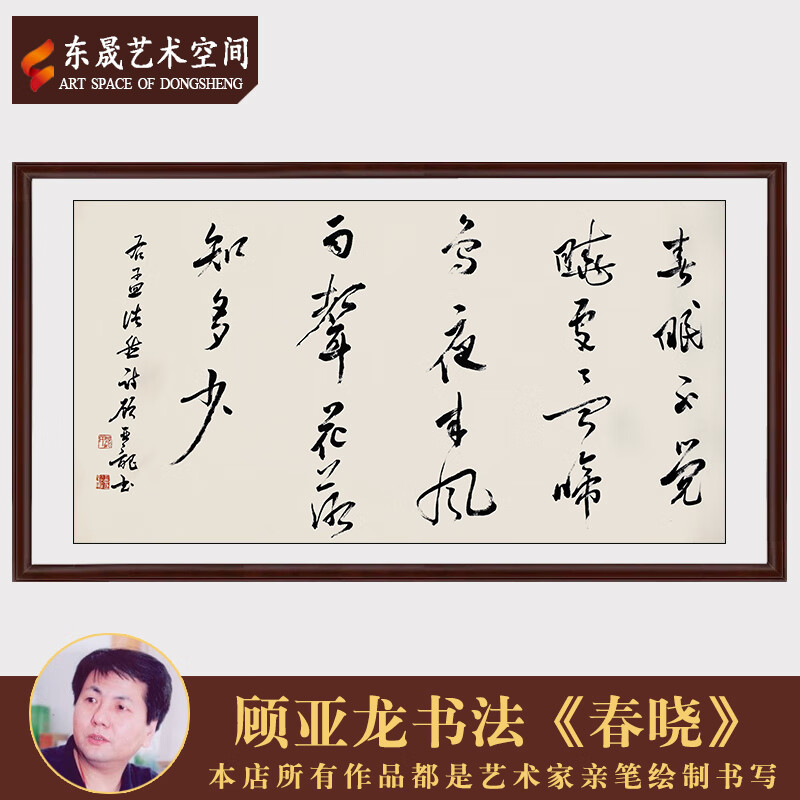 东晟艺术空间
ART SPACE OF DONGSHENG
春眠不觉
曉處々闻啼
鸟夜来风
雨聲花落
知多少
右孟浩然诗顾亚龙书
顾亚龙书法《春晓》
本店所有作品都是艺术家亲笔绘制书写